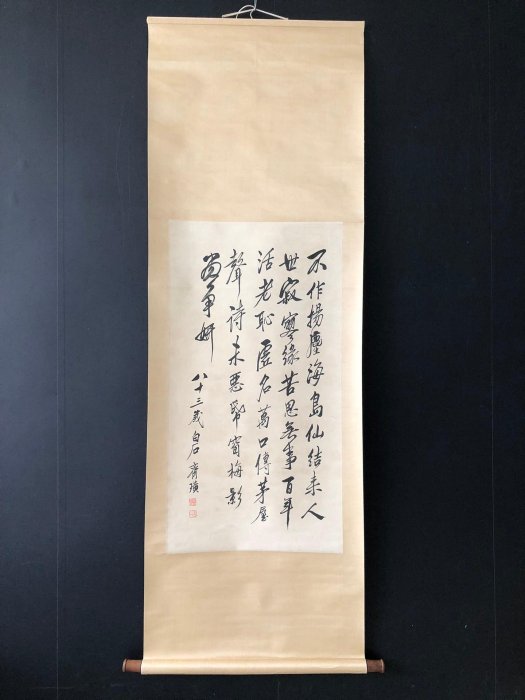 不作揚塵海島仙結来人
世寂寥緣苦思無事百年
活老恥虛名萬口傳茅屋
聲詩未惡窗梅影
尚爭妍
八十三歲白石齊璜